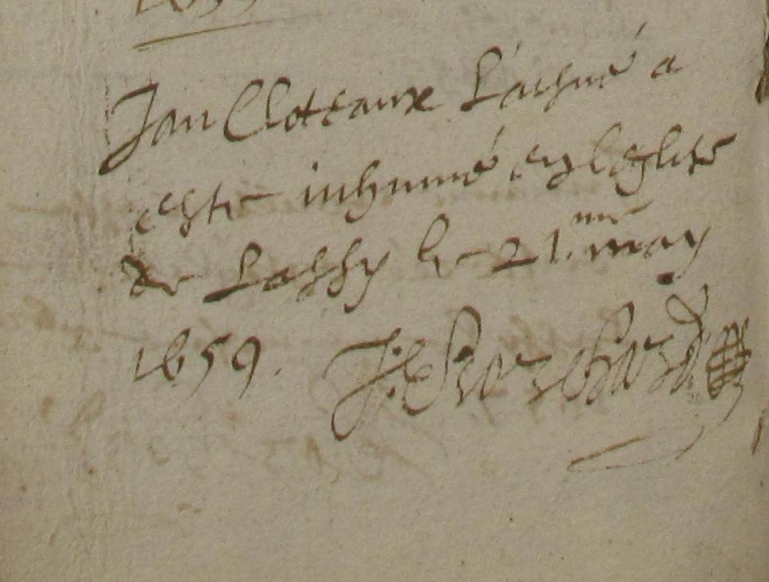 Jan Cloteaux l'aisné a
esté inhumé en leglise
de Lassy le 21.me may
1659.